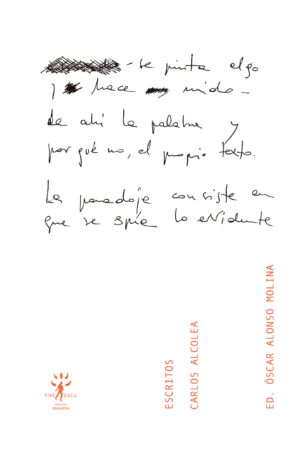 - se pinta algo
y hace ruido -
de ahí la palabra y
por qué no, el propio texto.
La paradoja consiste en
que se espía lo evidente
ESCRITOS
CARLOS ALCOLEA
ED. ÓSCAR ALONSO MOLINA